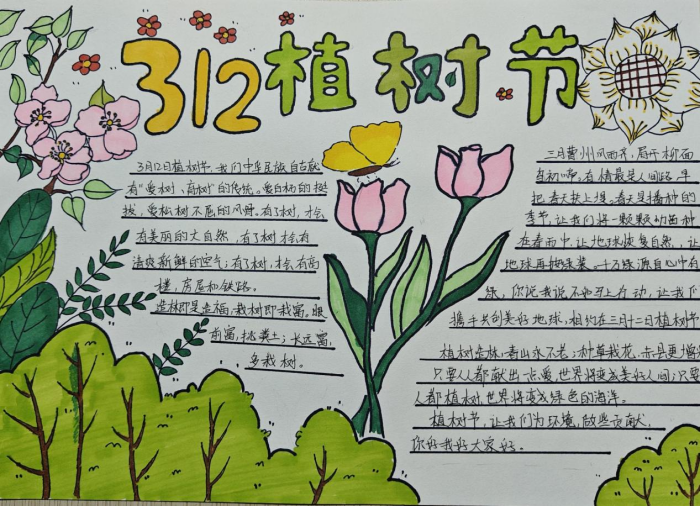 312植树节
3月12日植树节,我们中华民族自古就
有"爱树、育树"的传统。爱白杨的挺
拔,爱松树不屈的风骨。有了树,才会
有美丽的大自然,有了树才会有
清爽新鲜的空气;有了树,才会有高
楼,房屋和铁路。
造林即是造福,栽树即栽富,眼
前富,挑粪土;长远富,
多栽树。
三月
风
把春天扶上堤。春天是播种的
季节,让我们将一颗颗幼苗种
在春雨中,让地球恢复自然,让
地球再换绿装。十万绿源自心中有
绿,你说我说不如互上行动,让我们
携手共创美好地球,相约在三月十二日植树节
植树造林,青山永不老;种草栽花,
只要人人都献出一点爱,世界将变成美好人间;只要
人人都植树,世界将变成绿色的海洋。
植树节,让我们为环境,做些贡献,
你好我好大家好。